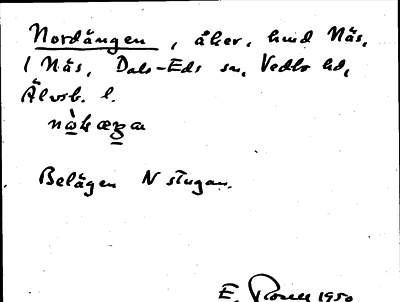 Nordängen, åker, hmd Näs,
1 Näs, Dals-Eds sn, Vedbo hd,
Älvsb. l.
Belägen N stugan.
E. 1950